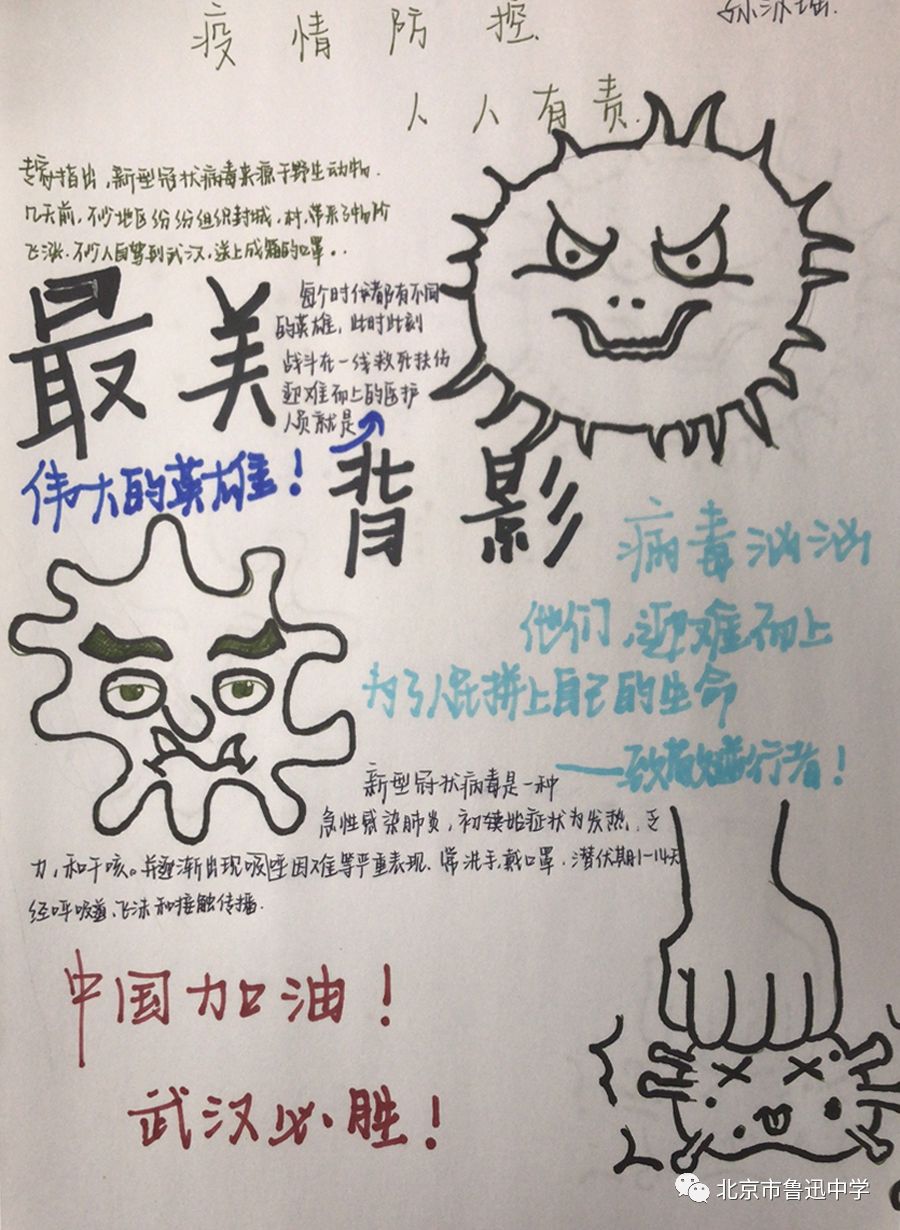 疫情防控
人人有责
专家指出,新型冠状病毒来源于野生动物.
几天前,不少地区纷纷组织封城,村,带来了物价
飞涨.不少人自驾到武汉,送上成箱的口罩..
最美
每个时代都有不同
的英雄,此时此刻
战斗在一线救死扶伤
迎难而上的医护
人员就是
伟大的英雄!
背影
病毒汹汹
他们,迎难而上
为了人民拼上自己的生命
——致敬逆行者!
新型冠状病毒是一种
急性感染肺炎,初始症状为发热,乏
力,和干咳。并逐渐出现呼吸困难等严重表现.常洗手,戴口罩,潜伏期1-14天
经呼吸道、飞沫和接触传播.
中国加油!
武汉必胜!
北京市鲁迅中学